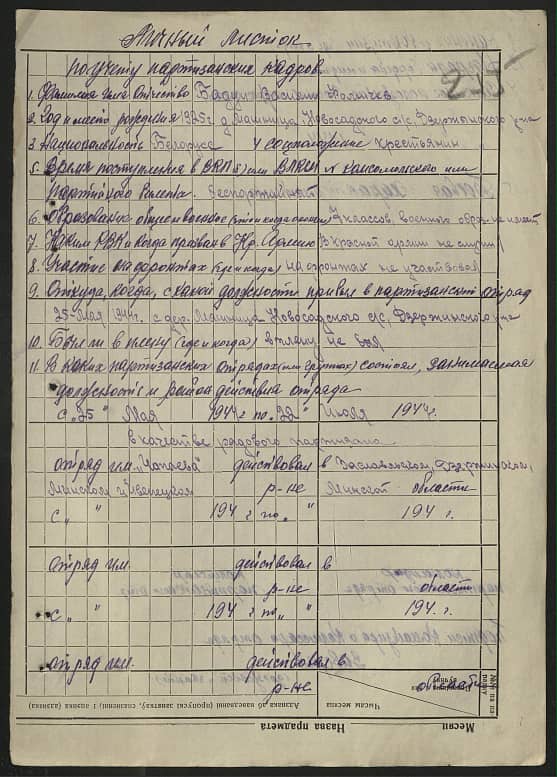 Личный листок
по учету партизанских кадров.
1. Фамилия Имя Отчество Бадуй Василий
2. Год и место рождения 1925 г. д. Машница, Новосадского с/с, Дзержинского р-на
3. Национальность Белорус 4 социальное крестьянин
5. Время поступления в ВКП(б) или ВЛКСМ комсомольского или
партийного билета. беспартийный
6. Образование общее и военное (что и когда окончил) 7 классов, военного образ. не имеет
7. Каким РВК и когда призван в Кр. Армию В красной армии не служил
8. Участие на фронтах (где и когда) на фронтах не участвовал
9. Откуда, когда, с какой должности прибыл в партизанский отряд
25 мая 1944 г. с дер. Машница Новосадского с/с, Дзержинского р-на
10. Был ли в плену (где и когда) в плену не был
11. В каких партизанских отрядах (или группах) состоял, занимаемая
должность и район действия отряда
с "25" Мая 1944 г. по "22" Июля 1944 г.
в качестве рядового партизана
отряд им. "Чапаева" действовал в Заславльском, Дзержинском,
Минском и Ивенецком р-не Минской области
с " " 194 г. по " " 194 г.
отряд им. действовал в
р-не области
с " " 194 г. по " " 194 г.
отряд им. действовал в
р-не области
Чысам месяца
Адзнака аб наведванні (пропускі, спазненні, і адзнака дазнака)
Месяц
Назва прадмета